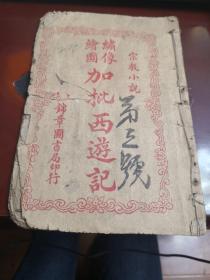 宗教小說
繡像
繪圖
加批西遊記
第三號
上海錦章圖書局印行